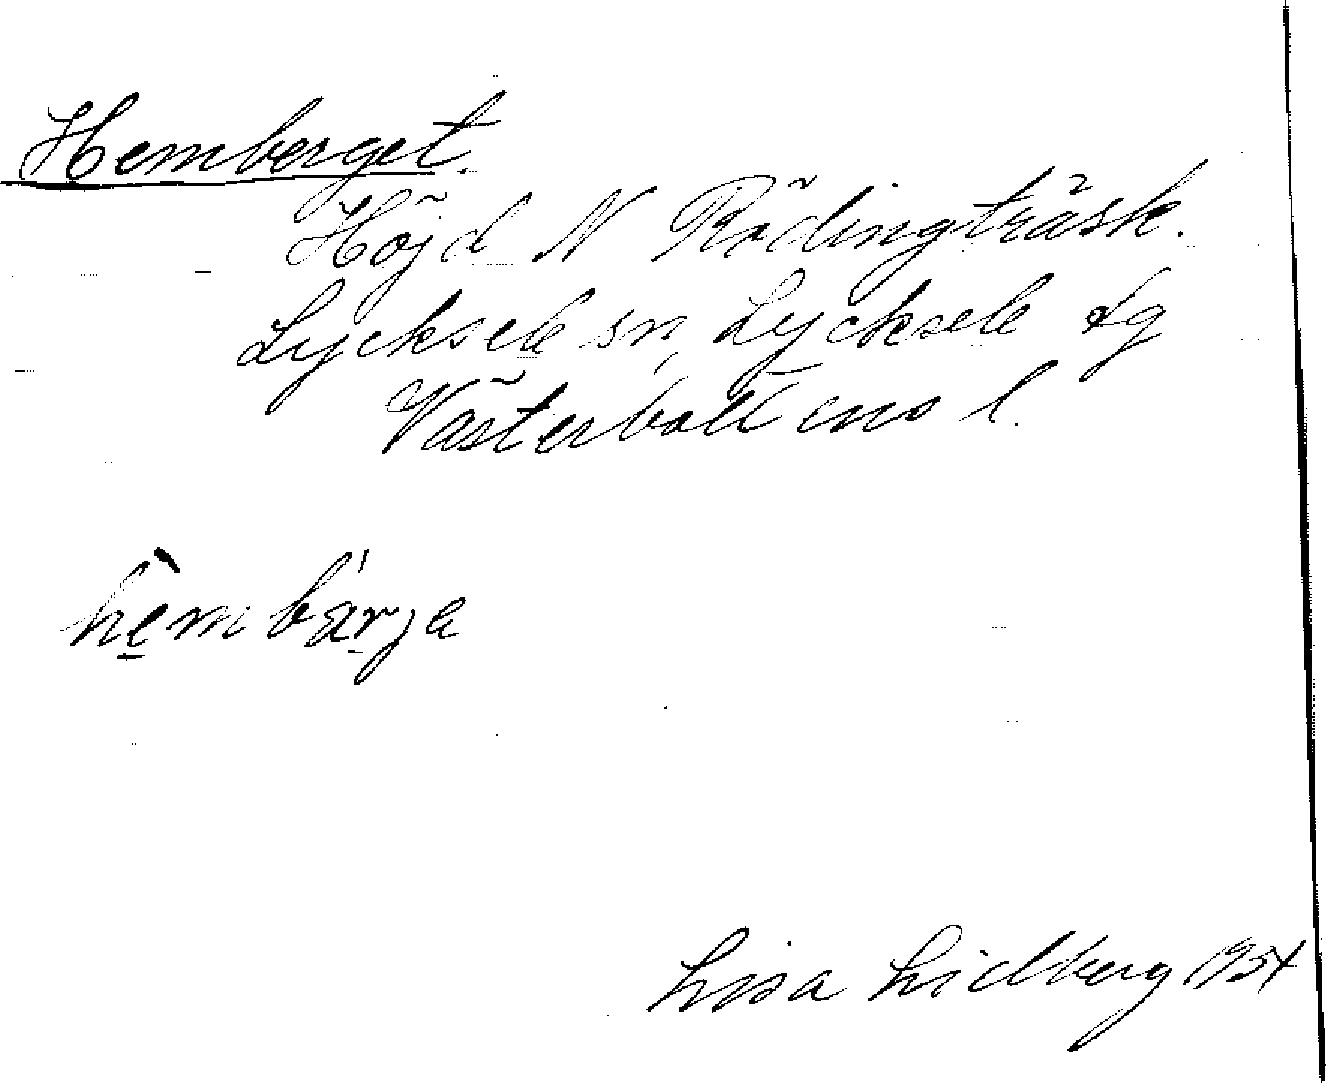 Hemberget.
Höjd N Rödingträsk.
Lycksele sn, Lycksele lg
Västerbottens l.
hèmbä́rjɐ
Lisa Lidberg 1954